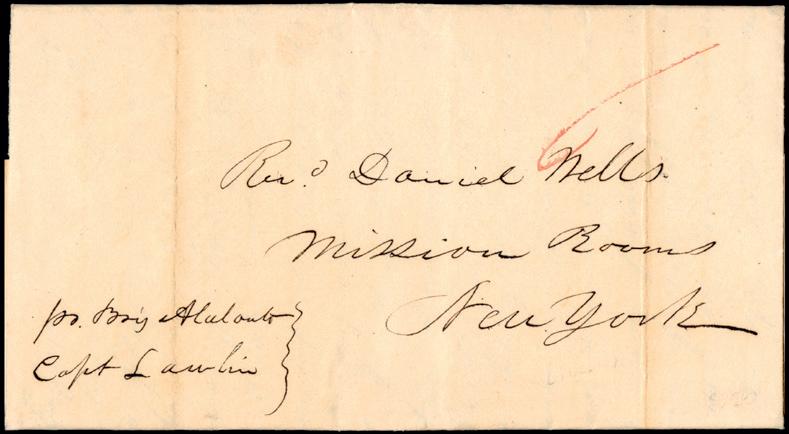 6
Revd. Daniel Wells.
Mission Rooms
New York
pr. Brig Atalanta
Capt Lawlin